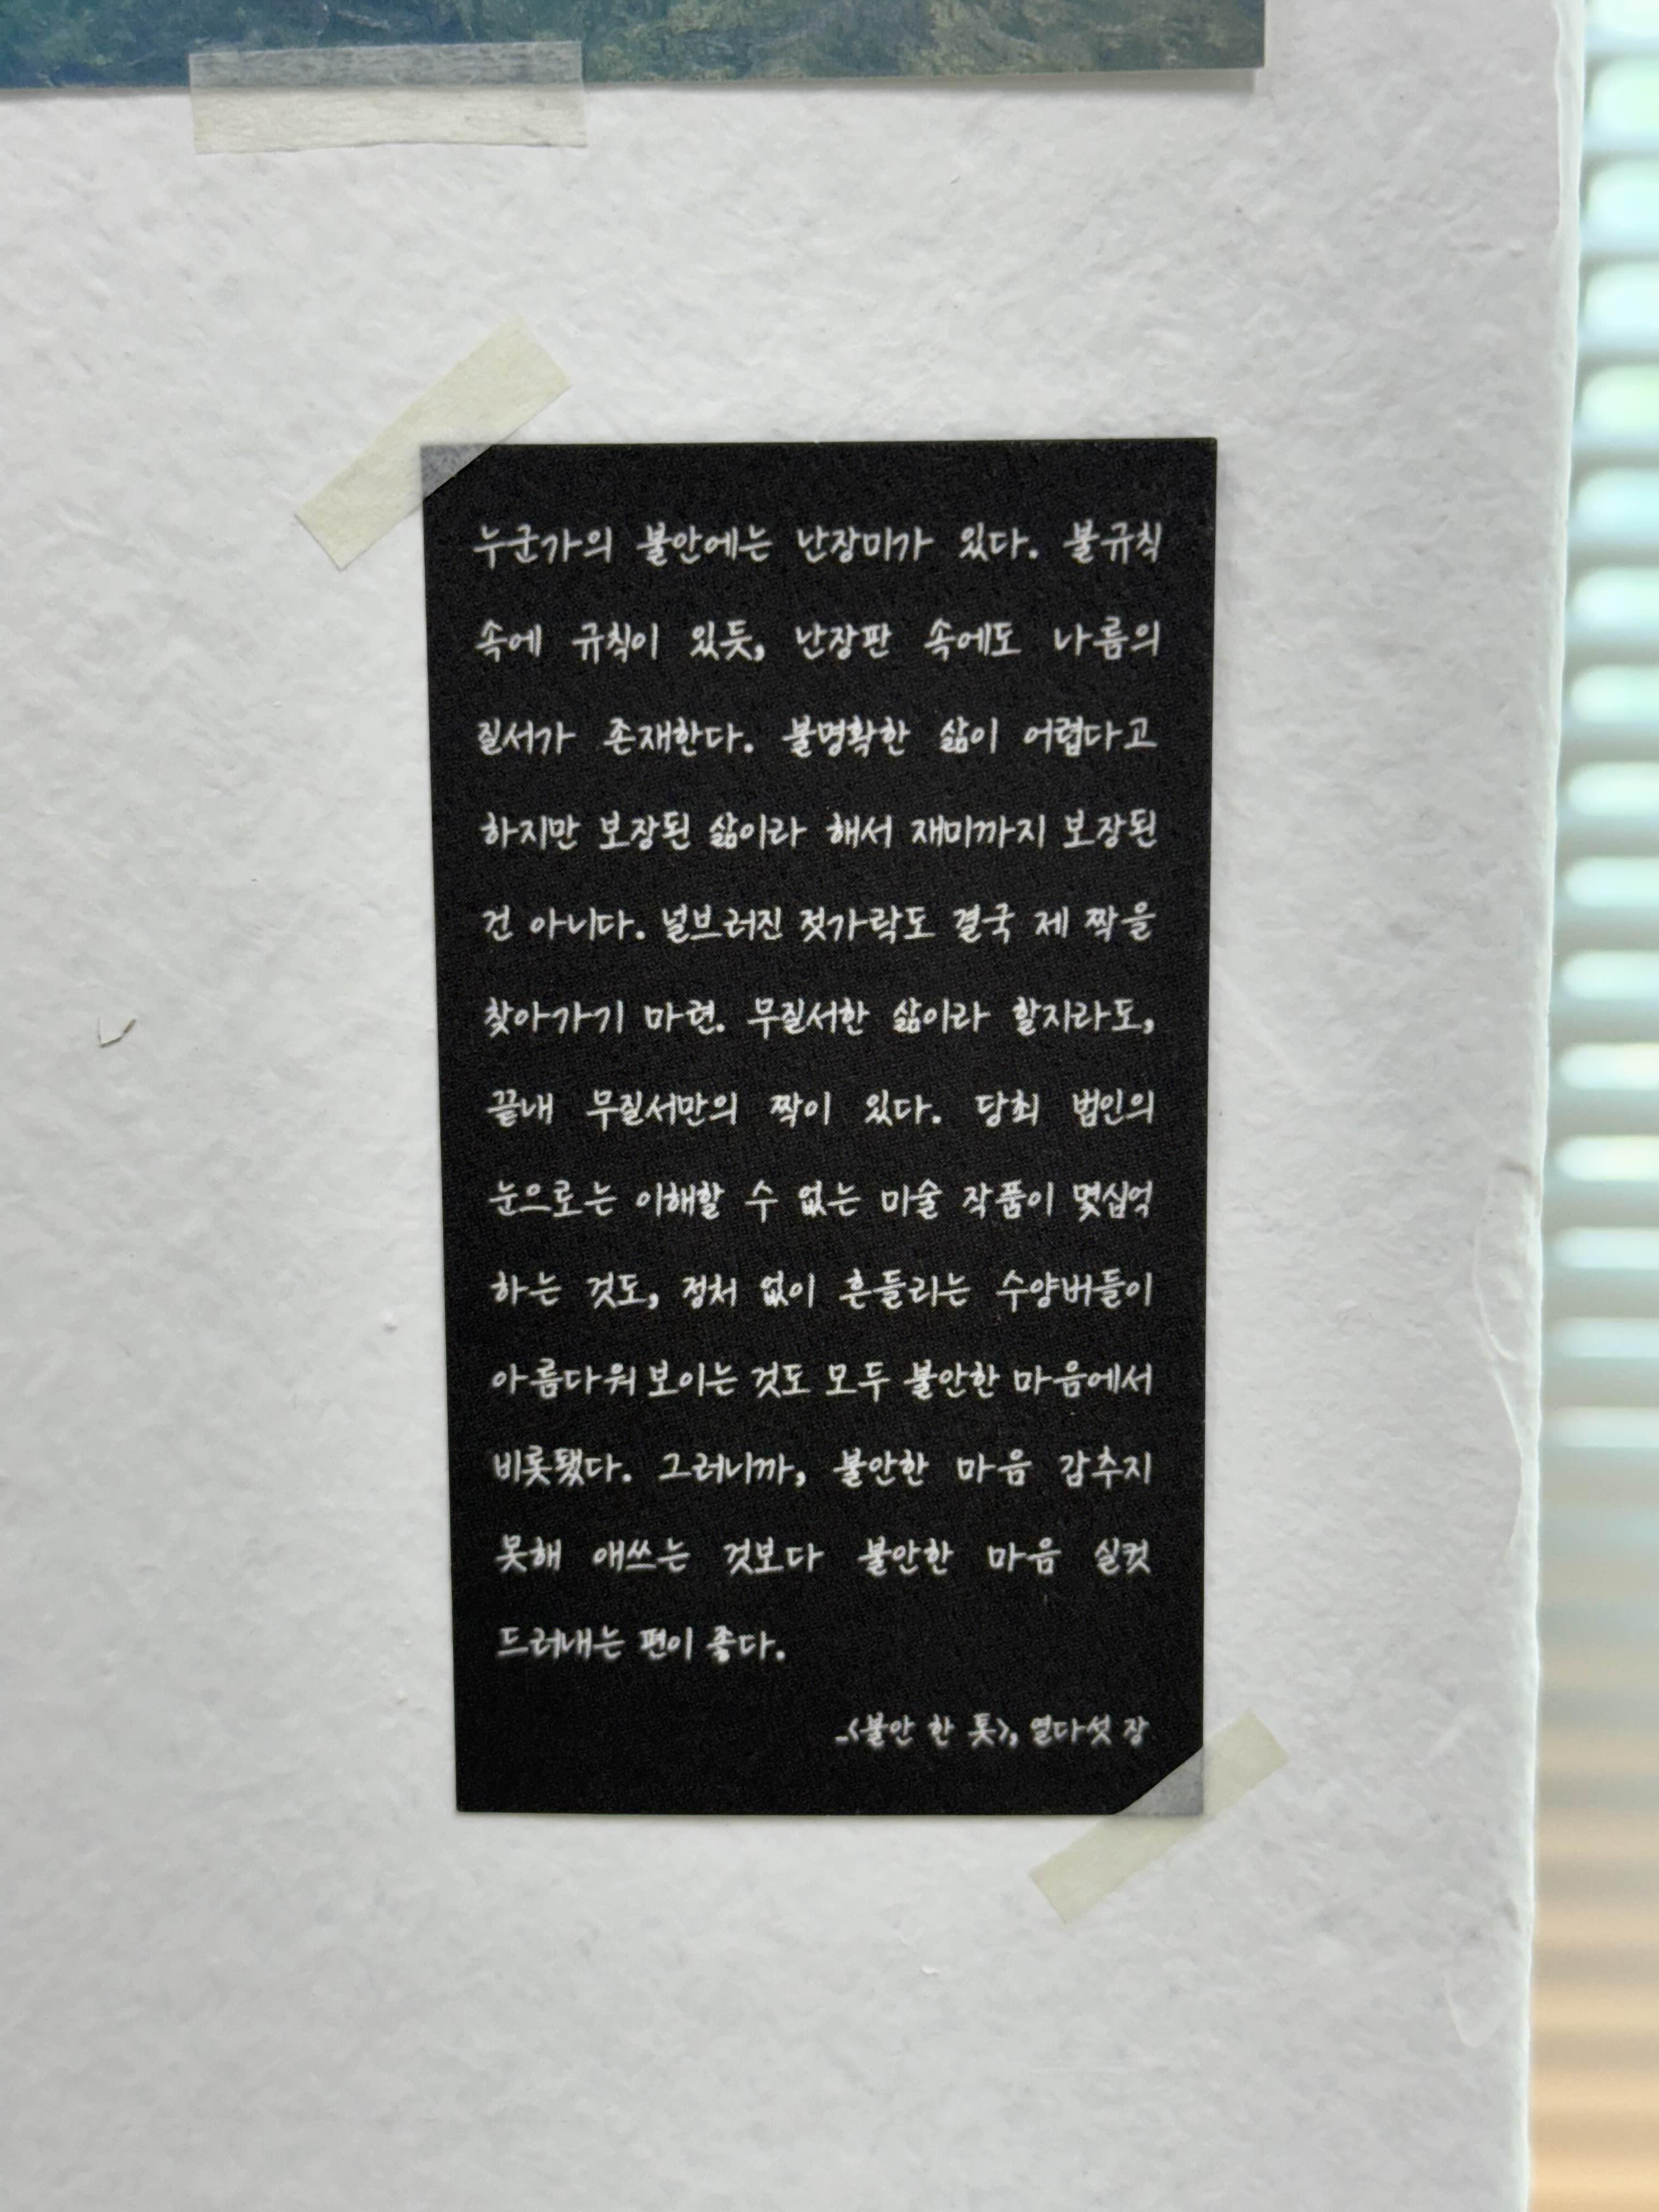 누군가의 불안에는 난장미가 있다. 불규칙
속에 규칙이 있듯, 난장판 속에도 나름의
질서가 존재한다. 불명확한 삶이 어렵다고
하지만 보장된 삶이라 해서 재미까지 보장된
건 아니다. 널브러진 젓가락도 결국 제 짝을
찾아가기 마련. 무질서한 삶이라 할지라도,
끝내 무질서만의 짝이 있다. 당최 범인의
눈으로는 이해할 수 없는 미술 작품이 몇십억
하는 것도, 정처 없이 흔들리는 수양버들이
아름다워 보이는 것도 모두 불안한 마음에서
비롯됐다. 그러니까, 불안한 마음 감추지
못해 애쓰는 것보다 불안한 마음 실컷
드러내는 편이 좋다.
_<불안 한 톳>, 열다섯 장